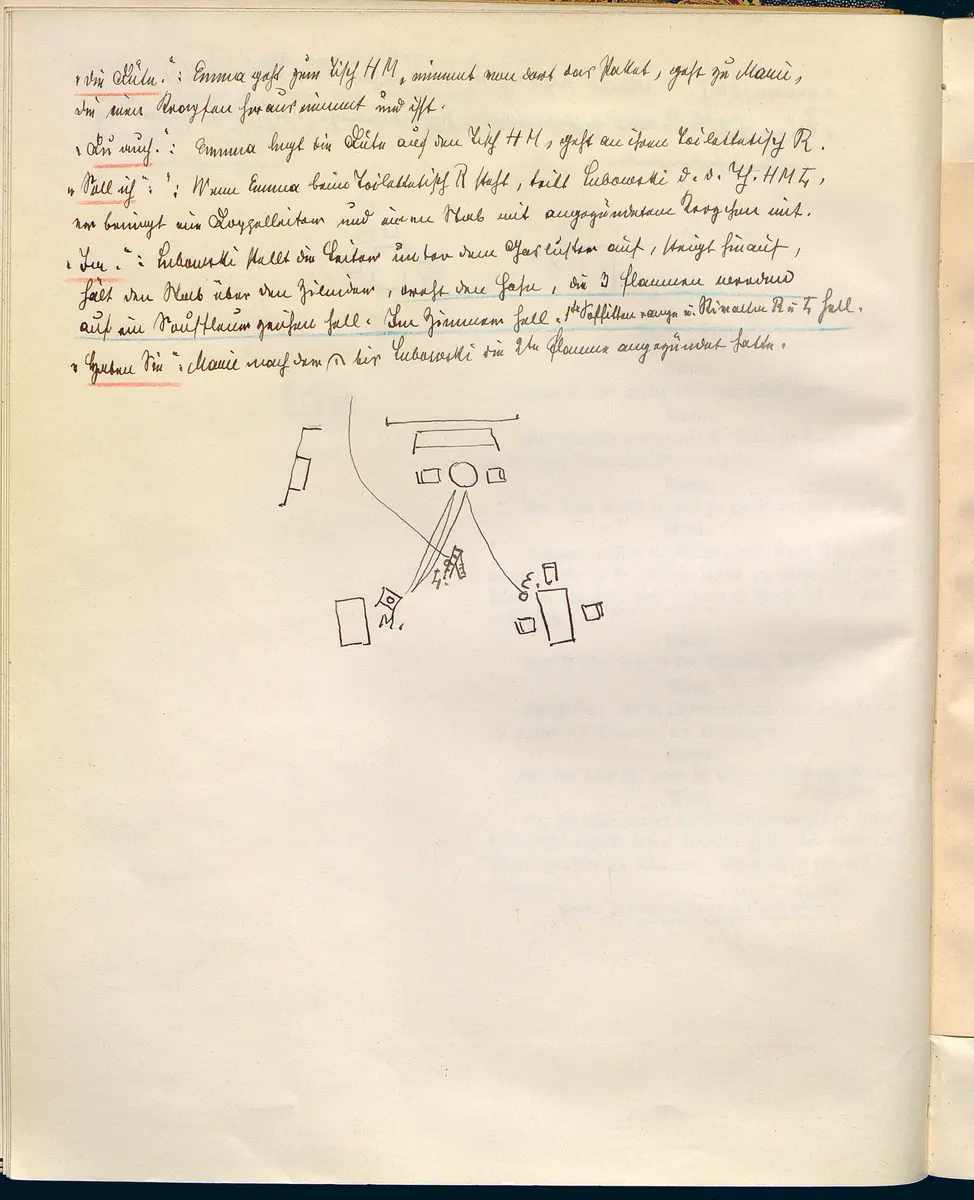 "Die Tüte.": Emma geht zum Tisch H M, nimmt von dort das Paket, geht zu Marie,
die einen Krapfen herausnimmt und isst.
"Du auch.": Emma legt die Tüte auf den Tisch H M, geht an ihren Toilettetisch R.
"Soll ich": Wenn Emma beim Toilettetisch R steht, tritt Lubowski d. d. Th. H M L,
er bringt eine Doppelleiter und einen Stab mit angezündetem mit.
"Ja.": Lubowski stellt die Leiter unter dem Gasluster auf, steigt hinauf,
hält den Stab über den Zilinder, dreht den Hahn, die 3 Flammen werden
auf ein Souffleurzeichen hell. Im Zimmer hell. 1te Soffittenrange u. R u L hell.
"Haben Sie": Marie nach dem 𝄐 bis Lubowski die 2te Flamme angezündet hatte.
L.
E.
M.